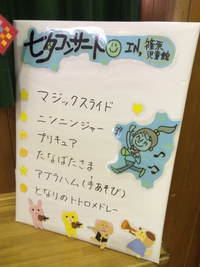 七夕コンサート IN,
児童館
マジックスライド
ニンニンジャー
プリキュア
たなばたさま
アブラハム(手あそび)
となりのトトロメドレー